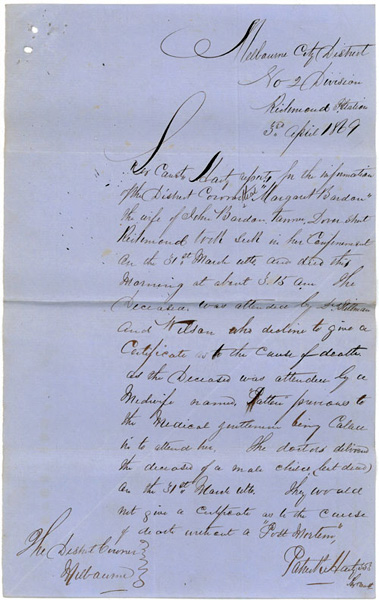 Melbourne City District
No 2 Division
Richmond Station
3rd April 1869
Const Hart reports for the information
of the District Coroner that "Margaret Bardon"
the wife of John Bardon Tanner Dover Street
Richmond took sick in her Confinement
on the 31st March ulto and died this
Morning at about 3.15 am. The
Deceased was attended by Dr
and Wilson who decline to give a
Certificate as to the cause of death
as the Deceased was attended by a
Midwife named previous to
the Medical gentlemen being Called
in to attend her. The doctors delivered
the deceased of a male child (but dead)
on the 31st March ulto. They would
not give a Certificate as to the cause
of death without a "Post Mortem"
The District Coroner
Melbourne
Patrick Hart